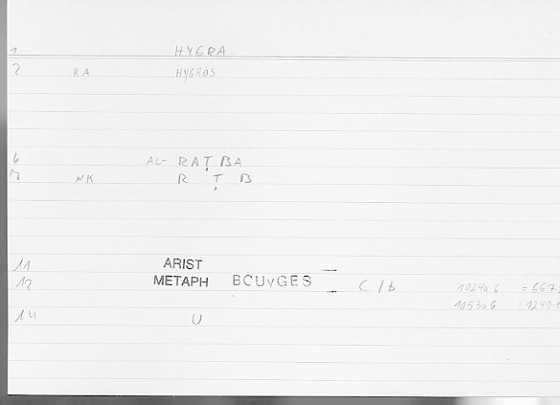 1 HYGRA
2 RA HYGROS
6 AL- RAṬBA
7 NK R Ṭ B
11 ARIST
12 METAPH BCUvGES C/b 1024a6 = 667
1053a6 1249
14 U